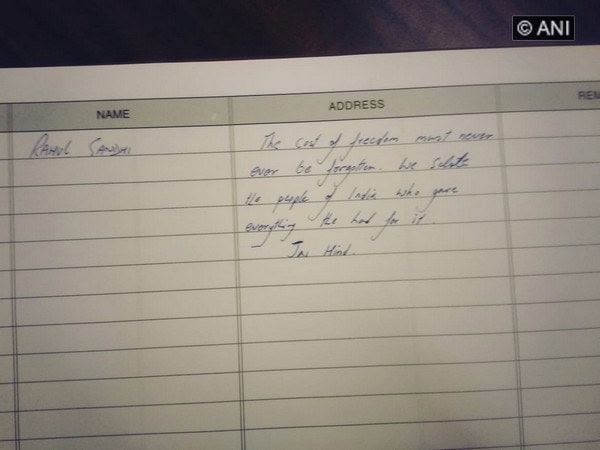 © ANI
NAME ADDRESS REM
RAHUL GANDHI The cost of freedom must never
ever be forgotten. We salute
the people of India who gave
everything the had for it.
Jai Hind.